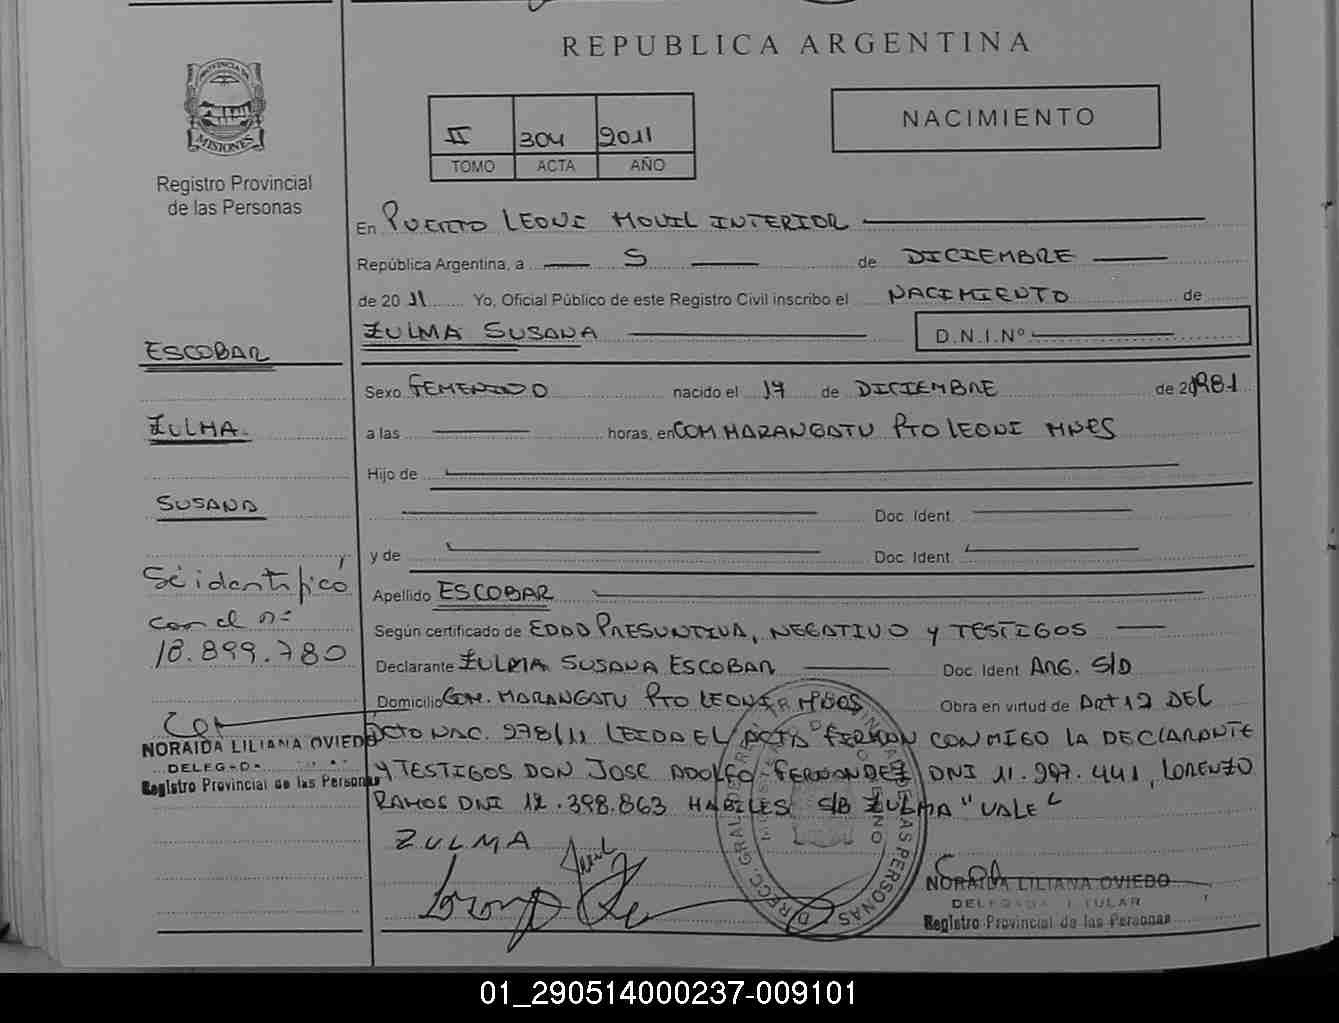 REPUBLICA ARGENTINA
PROVINCIA DE
MISIONES
Registro Provincial
de las Personas
II 304 2011
TOMO ACTA AÑO
NACIMIENTO
En PUERTO LEONI MOVIL INTERIOR
República Argentina, a 5 de DICIEMBRE
de 2011 Yo, Oficial Público de este Registro Civil inscribo el NACIMIENTO de
ZULMA SUSANA D.N.I.Nº
ESCOBAR
ZULMA
SUSANA
Se identificó
con el nº
18.899.780
NORAIDA LILIANA OVIEDO
DELEGADA
Registro Provincial de las Personas
Sexo FEMENINO nacido el 17 de DICIEMBRE de 1981
a las horas, en COM MARANGATU PTO LEONI MNES
Hijo de
Doc. Ident.
y de Doc. Ident.
Apellido ESCOBAR
Según certificado de EDAD PRESUNTIVA, NEGATIVO Y TESTIGOS
Declarante ZULMA SUSANA ESCOBAR Doc. Ident ARG. S/D
Domicilio COM. MARANGATU PTO LEONI MNES Obra en virtud de ART 12 DEL
DCTO NAC. 278/11 LEIDA EL ACTA FIRMAN CONMIGO LA DECLARANTE
Y TESTIGOS DON JOSE ADOLFO FERNANDEZ DNI 11.997.441, LORENZO
RAMOS DNI 12.398.863 HABILES S/B ZULMA "VALE"
ZULMA
DIRECC. GRAL. DE REG. PROVINCIAL DE LAS PERSONAS
NORAIDA LILIANA OVIEDO
DELEGADA TITULAR
Registro Provincial de las Personas
01_290514000237-009101